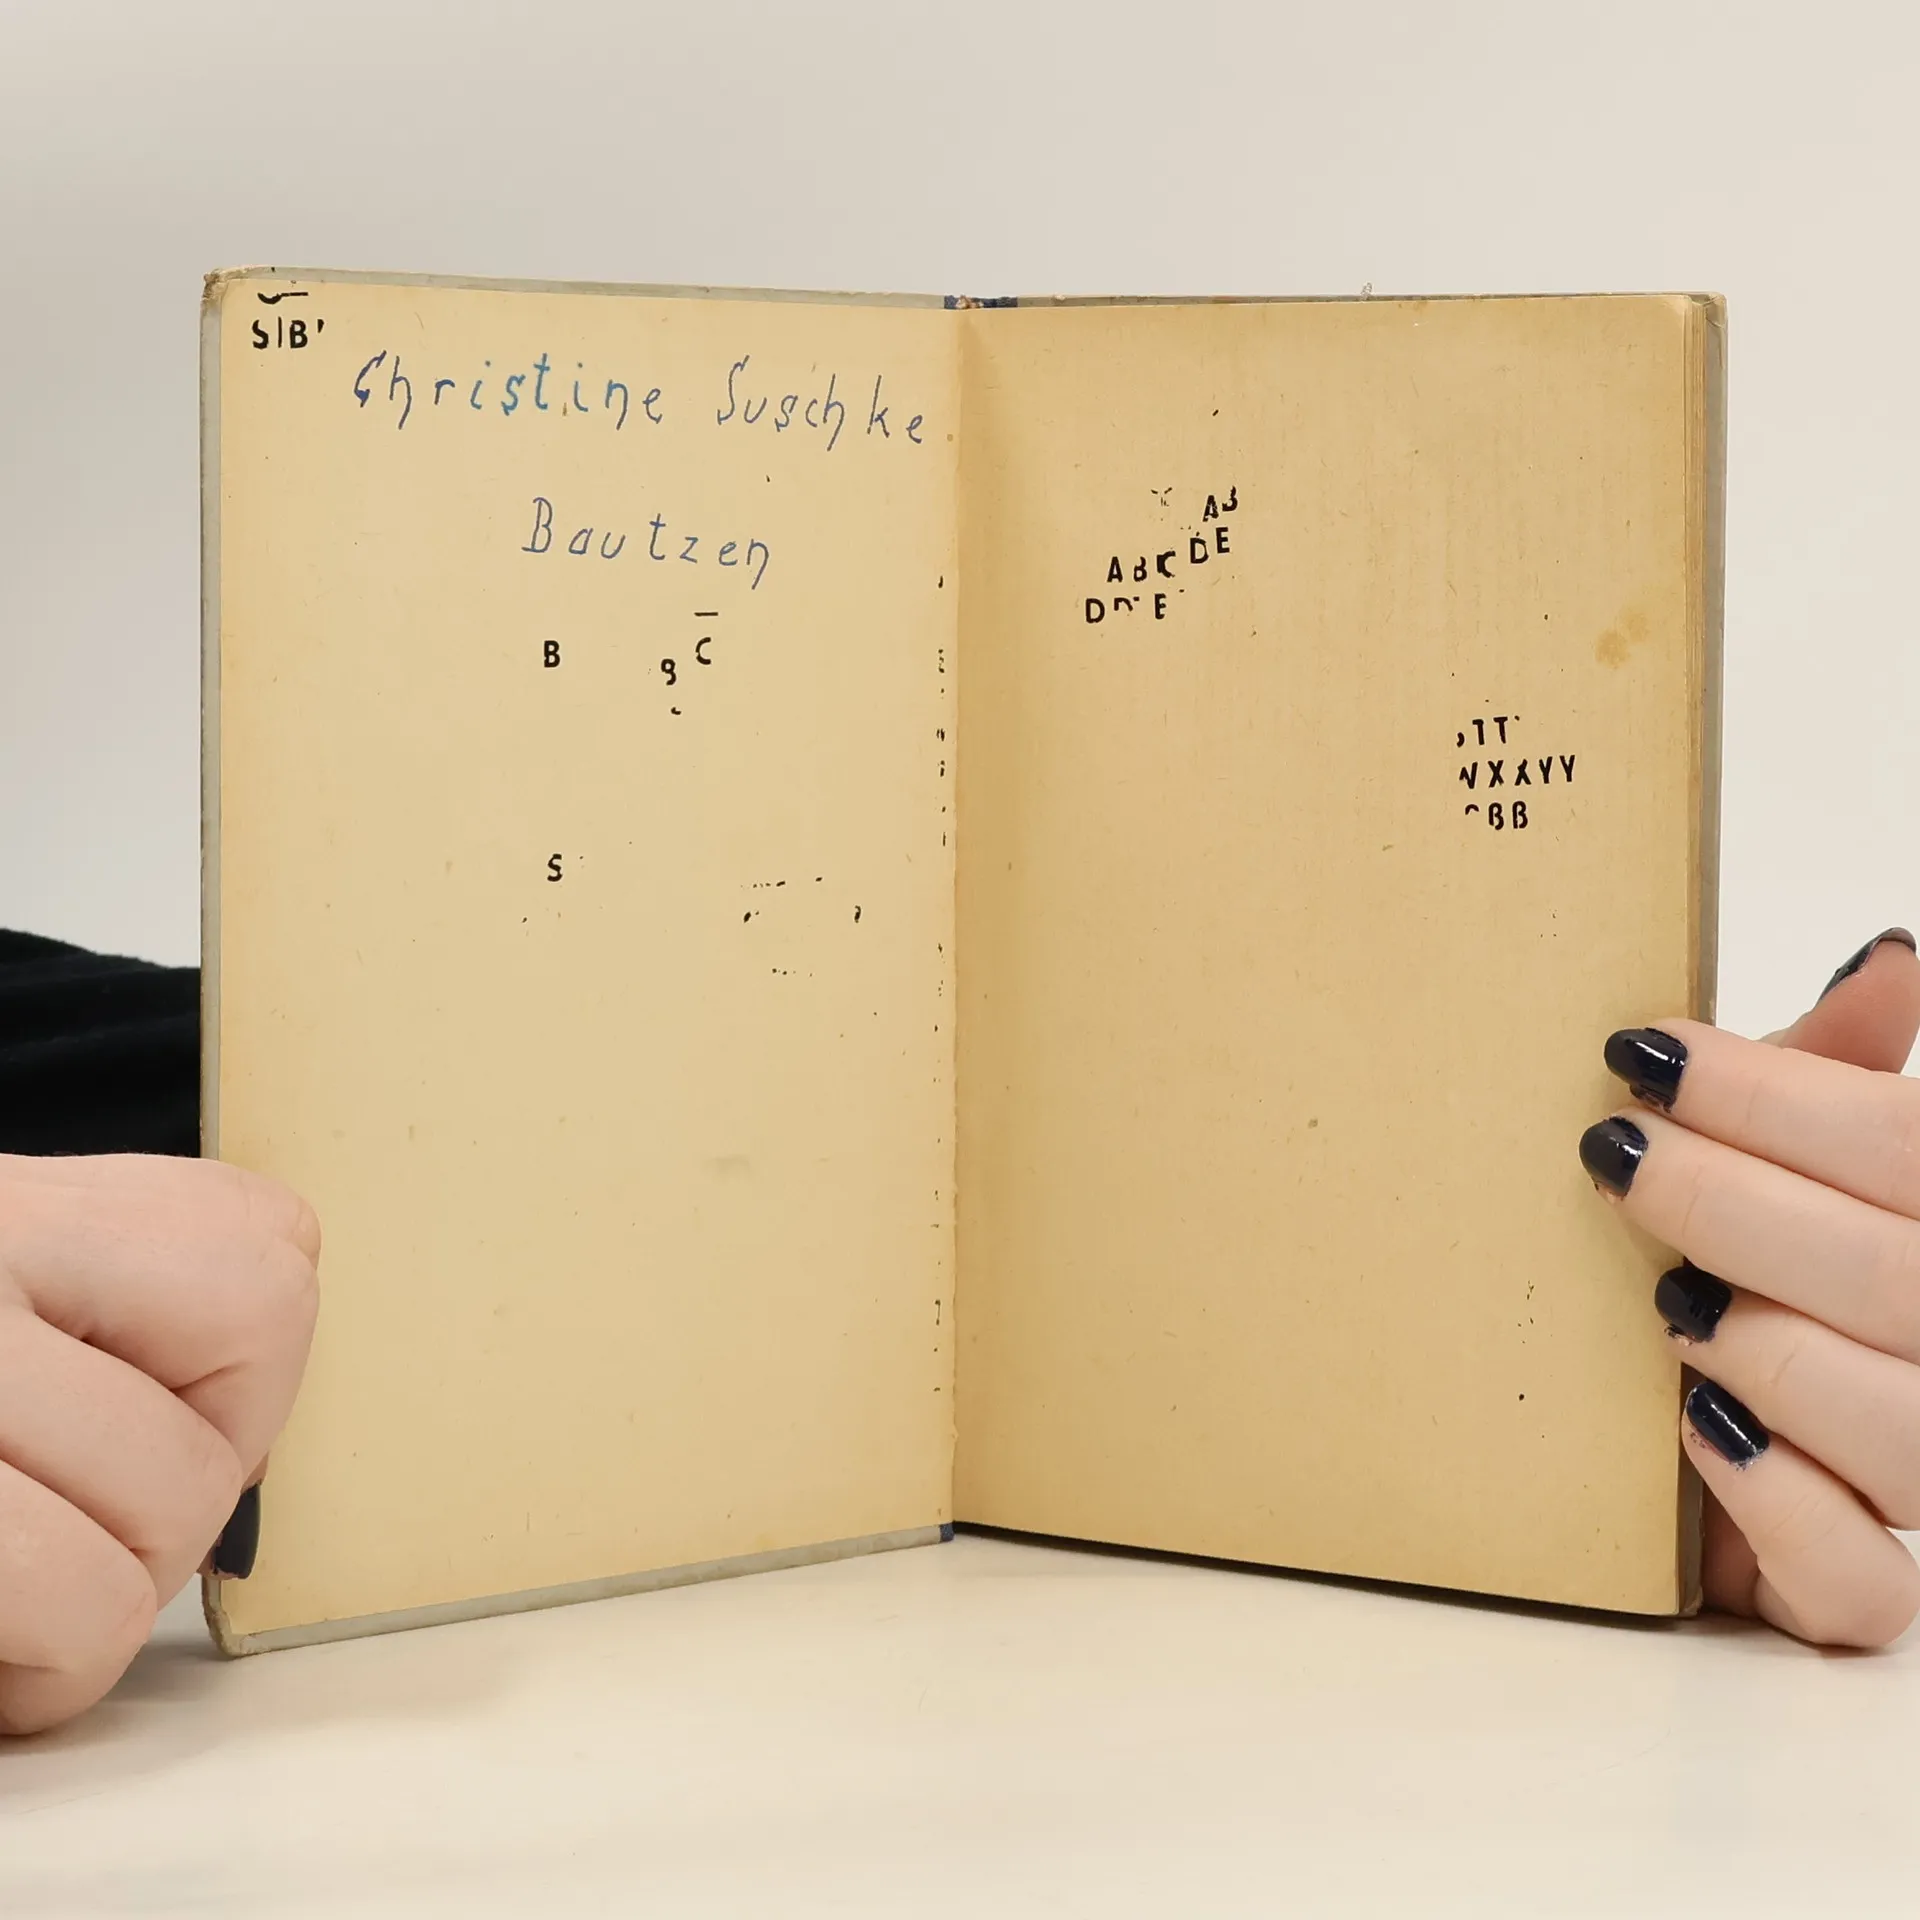 SIB
Christine Suschke
Bautzen
B
B C
S
AB
DE
ABC
D E
TT
XXYY
BB